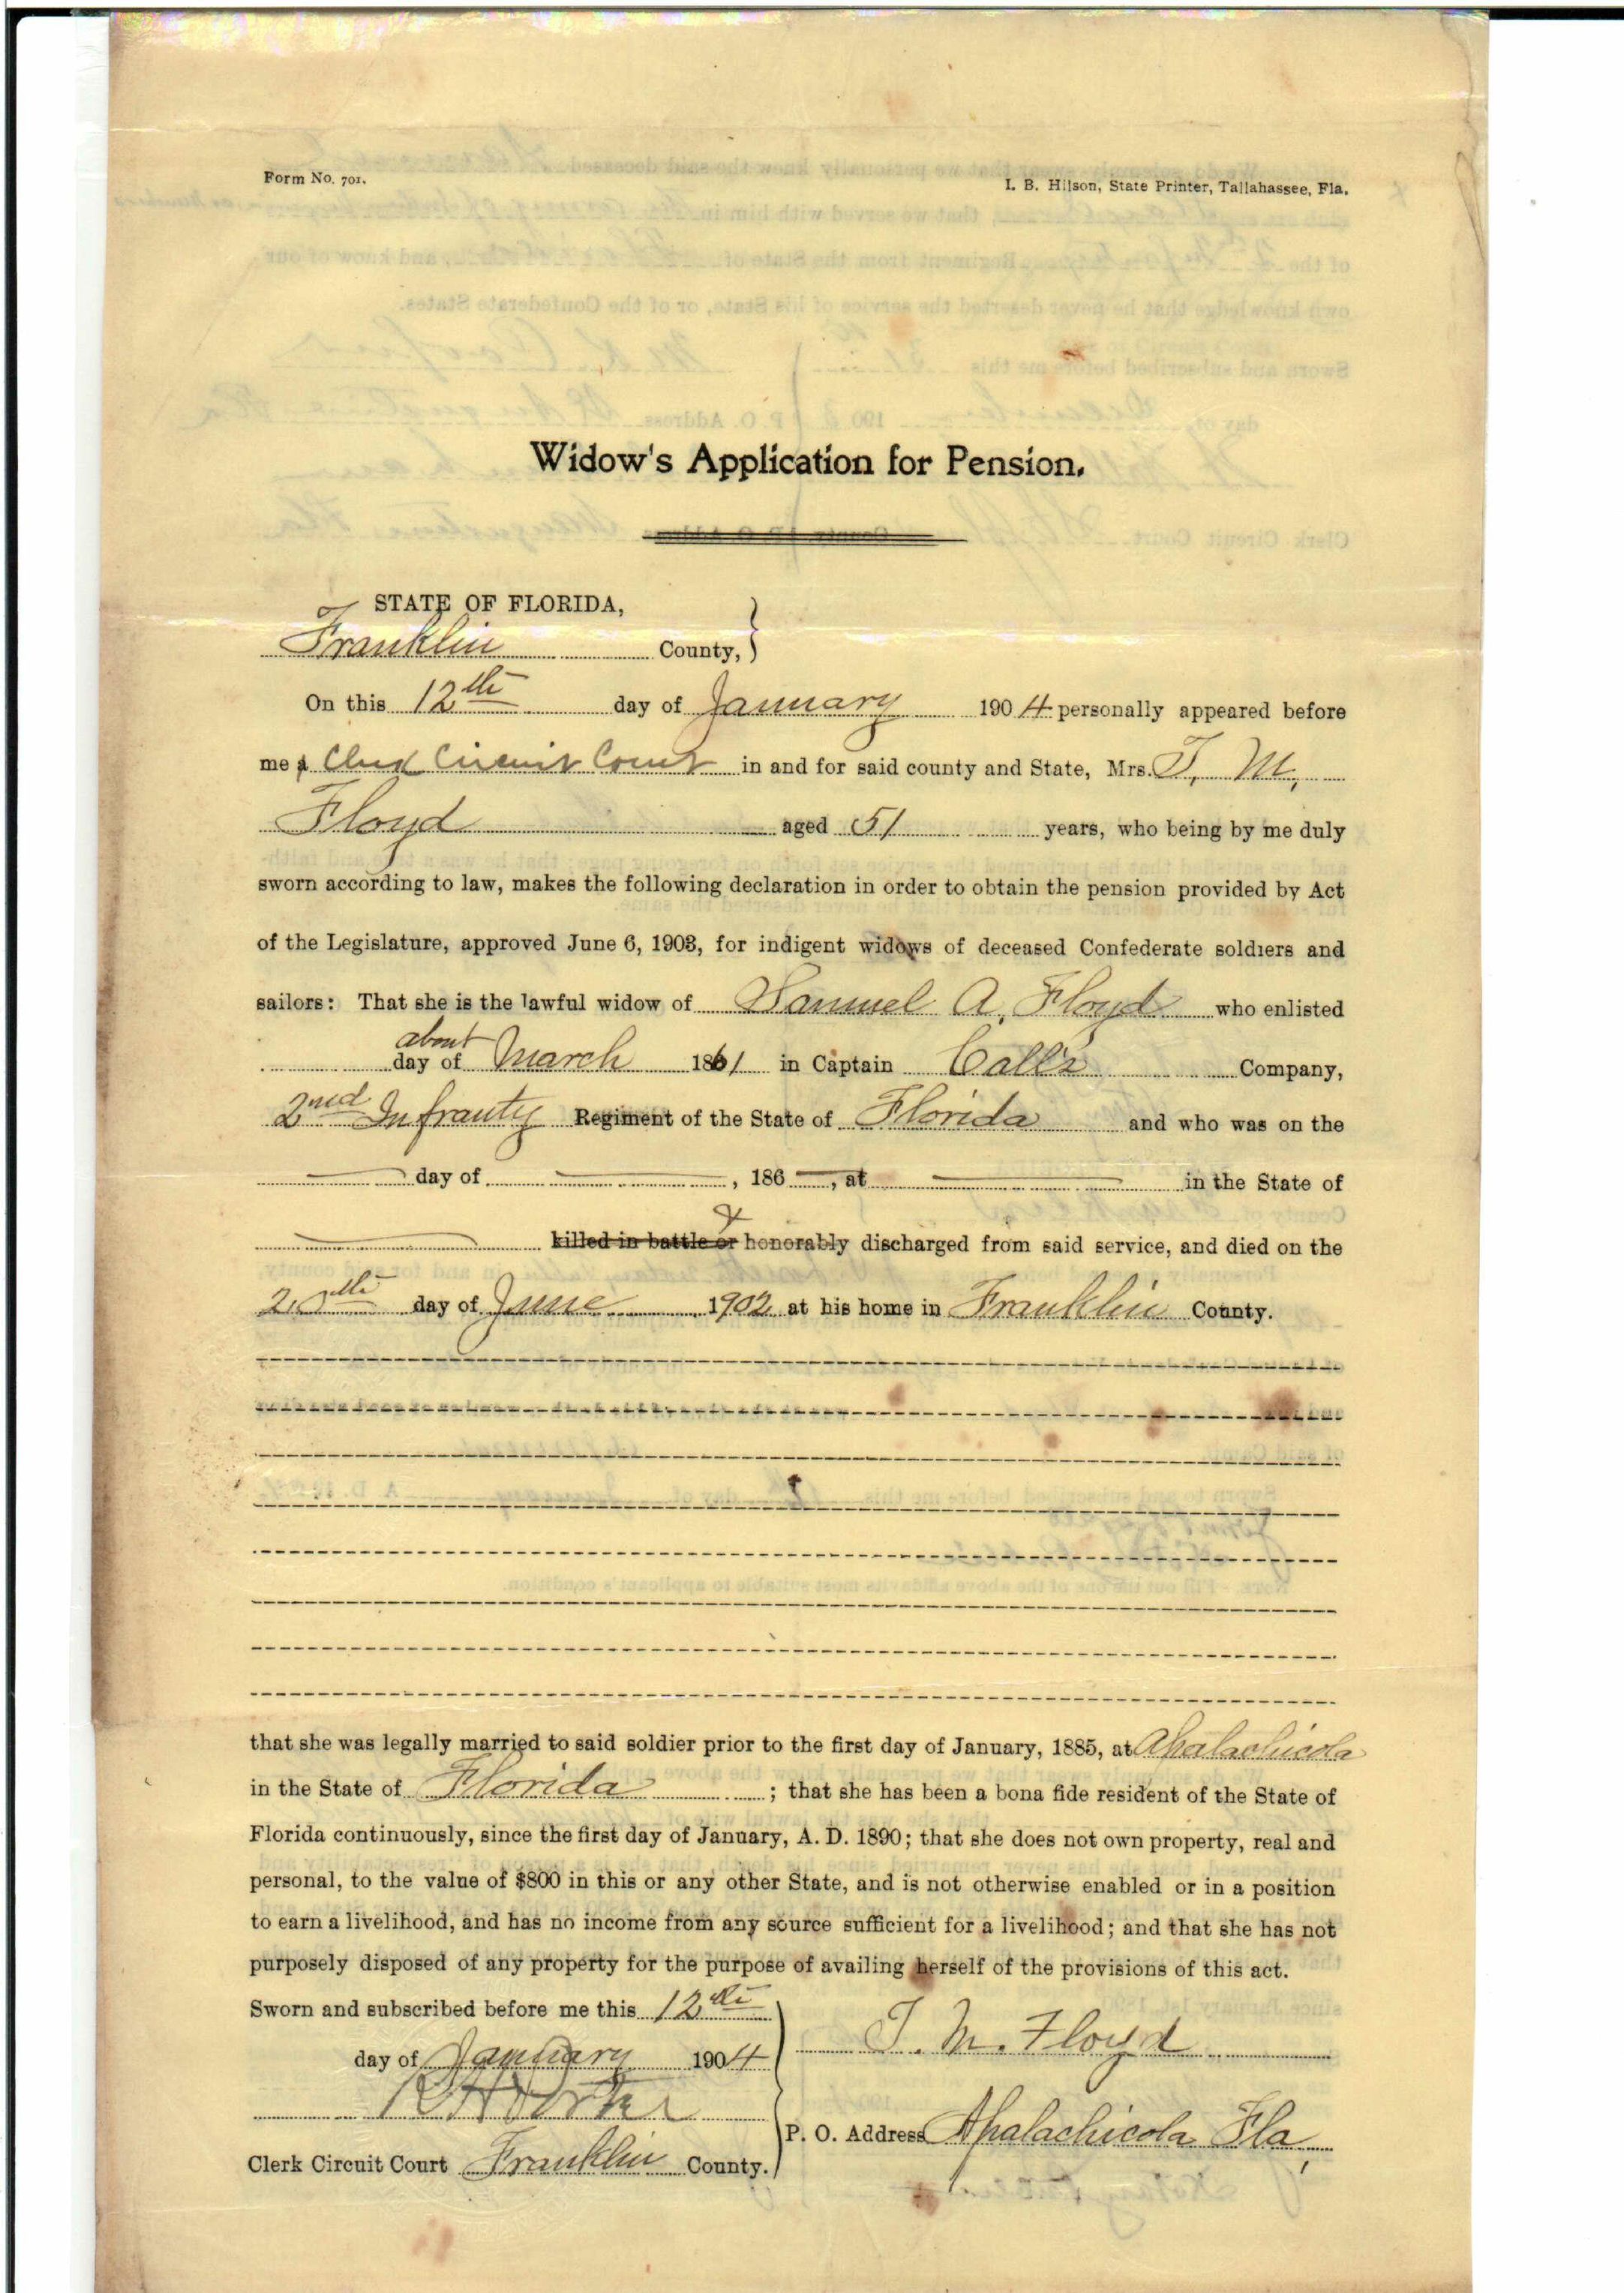 Form No. 701.
I. B. Hilson, State Printer, Tallahassee, Fla.
Widow's Application for Pension.
STATE OF FLORIDA,
Franklin County,
On this 12th day of January 1904 personally appeared before
me a Clerk Circuit Court in and for said county and State, Mrs. T. M.
Floyd aged 51 years, who being by me duly
sworn according to law, makes the following declaration in order to obtain the pension provided by Act
of the Legislature, approved June 6, 1903, for indigent widows of deceased Confederate soldiers and
sailors: That she is the lawful widow of Samuel A. Floyd who enlisted
about
day of March 1861 in Captain Call's Company,
2nd Infranty Regiment of the State of Florida and who was on the
day of , 186 , at in the State of
&
killed in battle or honorably discharged from said service, and died on the
day of June 1902 at his home in Franklin County.
that she was legally married to said soldier prior to the first day of January, 1885, at Apalachicola
in the State of Florida ; that she has been a bona fide resident of the State of
Florida continuously, since the first day of January, A. D. 1890; that she does not own property, real and
personal, to the value of $800 in this or any other State, and is not otherwise enabled or in a position
to earn a livelihood, and has no income from any source sufficient for a livelihood; and that she has not
purposely disposed of any property for the purpose of availing herself of the provisions of this act.
Sworn and subscribed before me this 12th
day of January 1904
T. M. Floyd
R H Porter
P. O. Address Apalachicola Fla,
Clerk Circuit Court Franklin County.